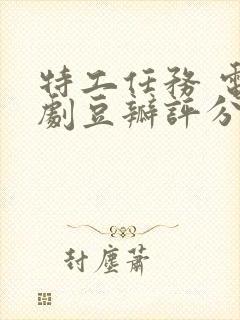 特工任務 電
劇豆瓣評分
封塵蕭